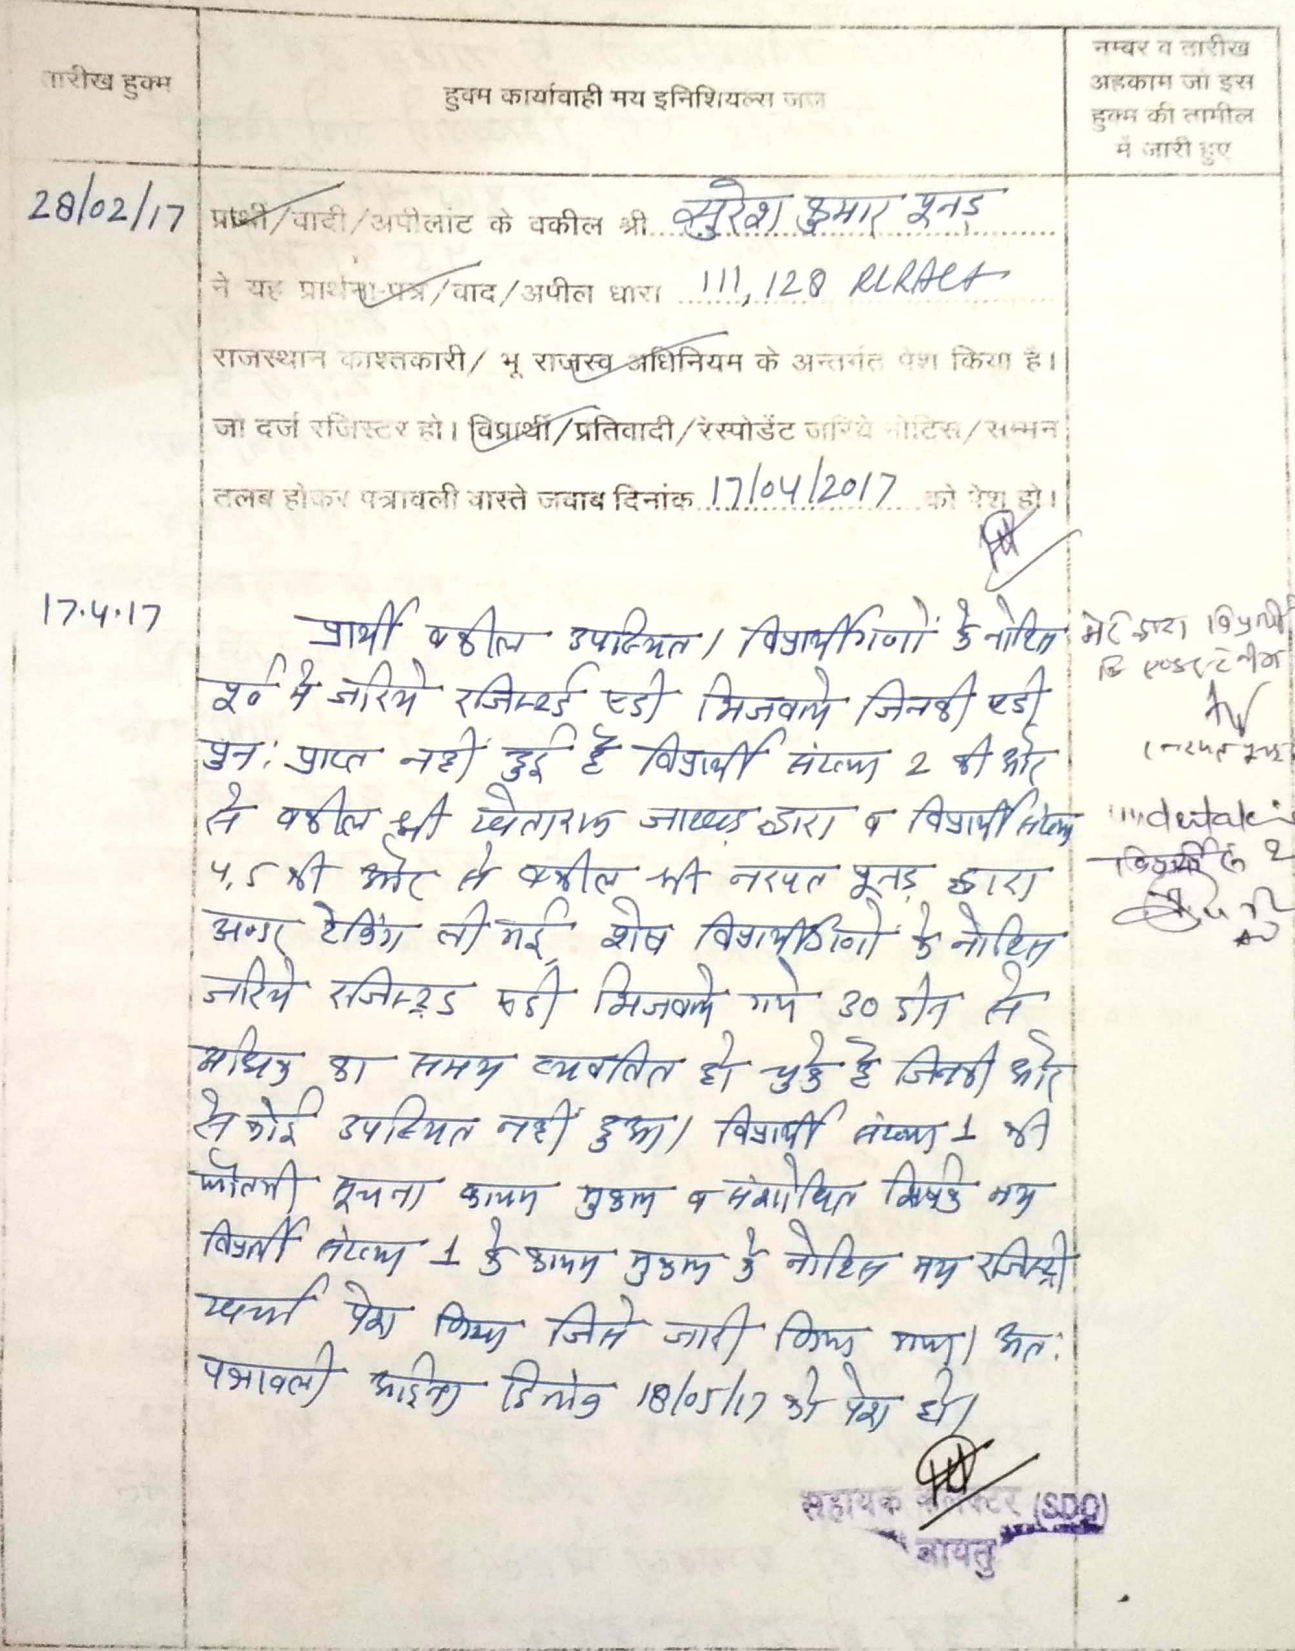 तारीख हुक्म
हुक्म कार्यावाही मय इनिशियल्स जज
नम्बर व तारीख
अहकाम जो इस
हुक्म की तामील
में जारी हुए
28/02/17
प्रार्थी/वादी/अपीलांट के वकील श्री सुरेश कुमार पूनड़
ने यह प्रार्थना-पत्र/वाद/अपील धारा 111, 128 RLRACt
राजस्थान काश्तकारी/ भू राजस्व अधिनियम के अन्तर्गत पेश किया है।
जो दर्ज रजिस्टर हो। विप्रार्थी/प्रतिवादी/रेस्पोडेंट जरिये नोटिस/सम्मन
तलब होकर पत्रावली वास्ते जवाब दिनांक 17/04/2017 को पेश हो।
17.4.17
प्रार्थी वकील उपस्थित। विप्रार्थीगणों के नोटिस
पूर्व में जरिये रजिस्टर्ड एडी भिजवाये जिनकी एडी
पुन: प्राप्त नहीं हुई है विप्रार्थी संख्या 2 की ओर
से वकील श्री खेताराम जाखड़ द्वारा व विप्रार्थी संख्या
4,5 की ओर से वकील श्री नरपत पूनड़ द्वारा
अण्डर टेकिंग ली गई, शेष विप्रार्थीगणों के नोटिस
जरिये रजिस्टर्ड एडी भिजवाये गये 30 दीन से
अधिक का समय व्यवतित हो चुके है जिनकी ओर
से कोई उपस्थित नहीं हुआ। विप्रार्थी संख्या 1 की
फौतगी सूचना कायम मुकाम व संशोधित शिर्षक मय
विप्रार्थी संख्या 1 के कायम मुकाम के नोटिस मय रजिस्ट्री
खर्चा पेश किया जिसे जारी किया गया। अत:
पत्रावली आईन्दा दिनांक 18/05/17 को पेश हो।
मेरे द्वारा विप्रार्थी
विप्रार्थी सं 2
सहायक कलक्टर (SDO)
बायतु